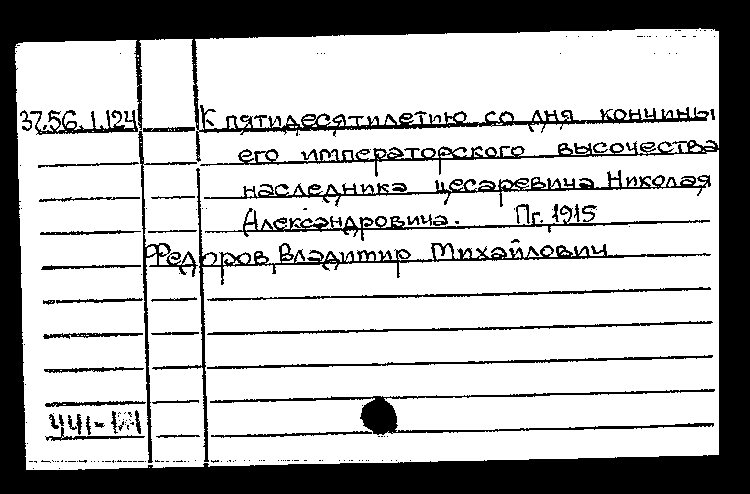 37.56.1.124 К пятидесятилетию со дня кончины
его императорского высочества
наследника цесаревича Николая
Александровича. Пг, 1915
Федоров, Владимир Михайлович
441-